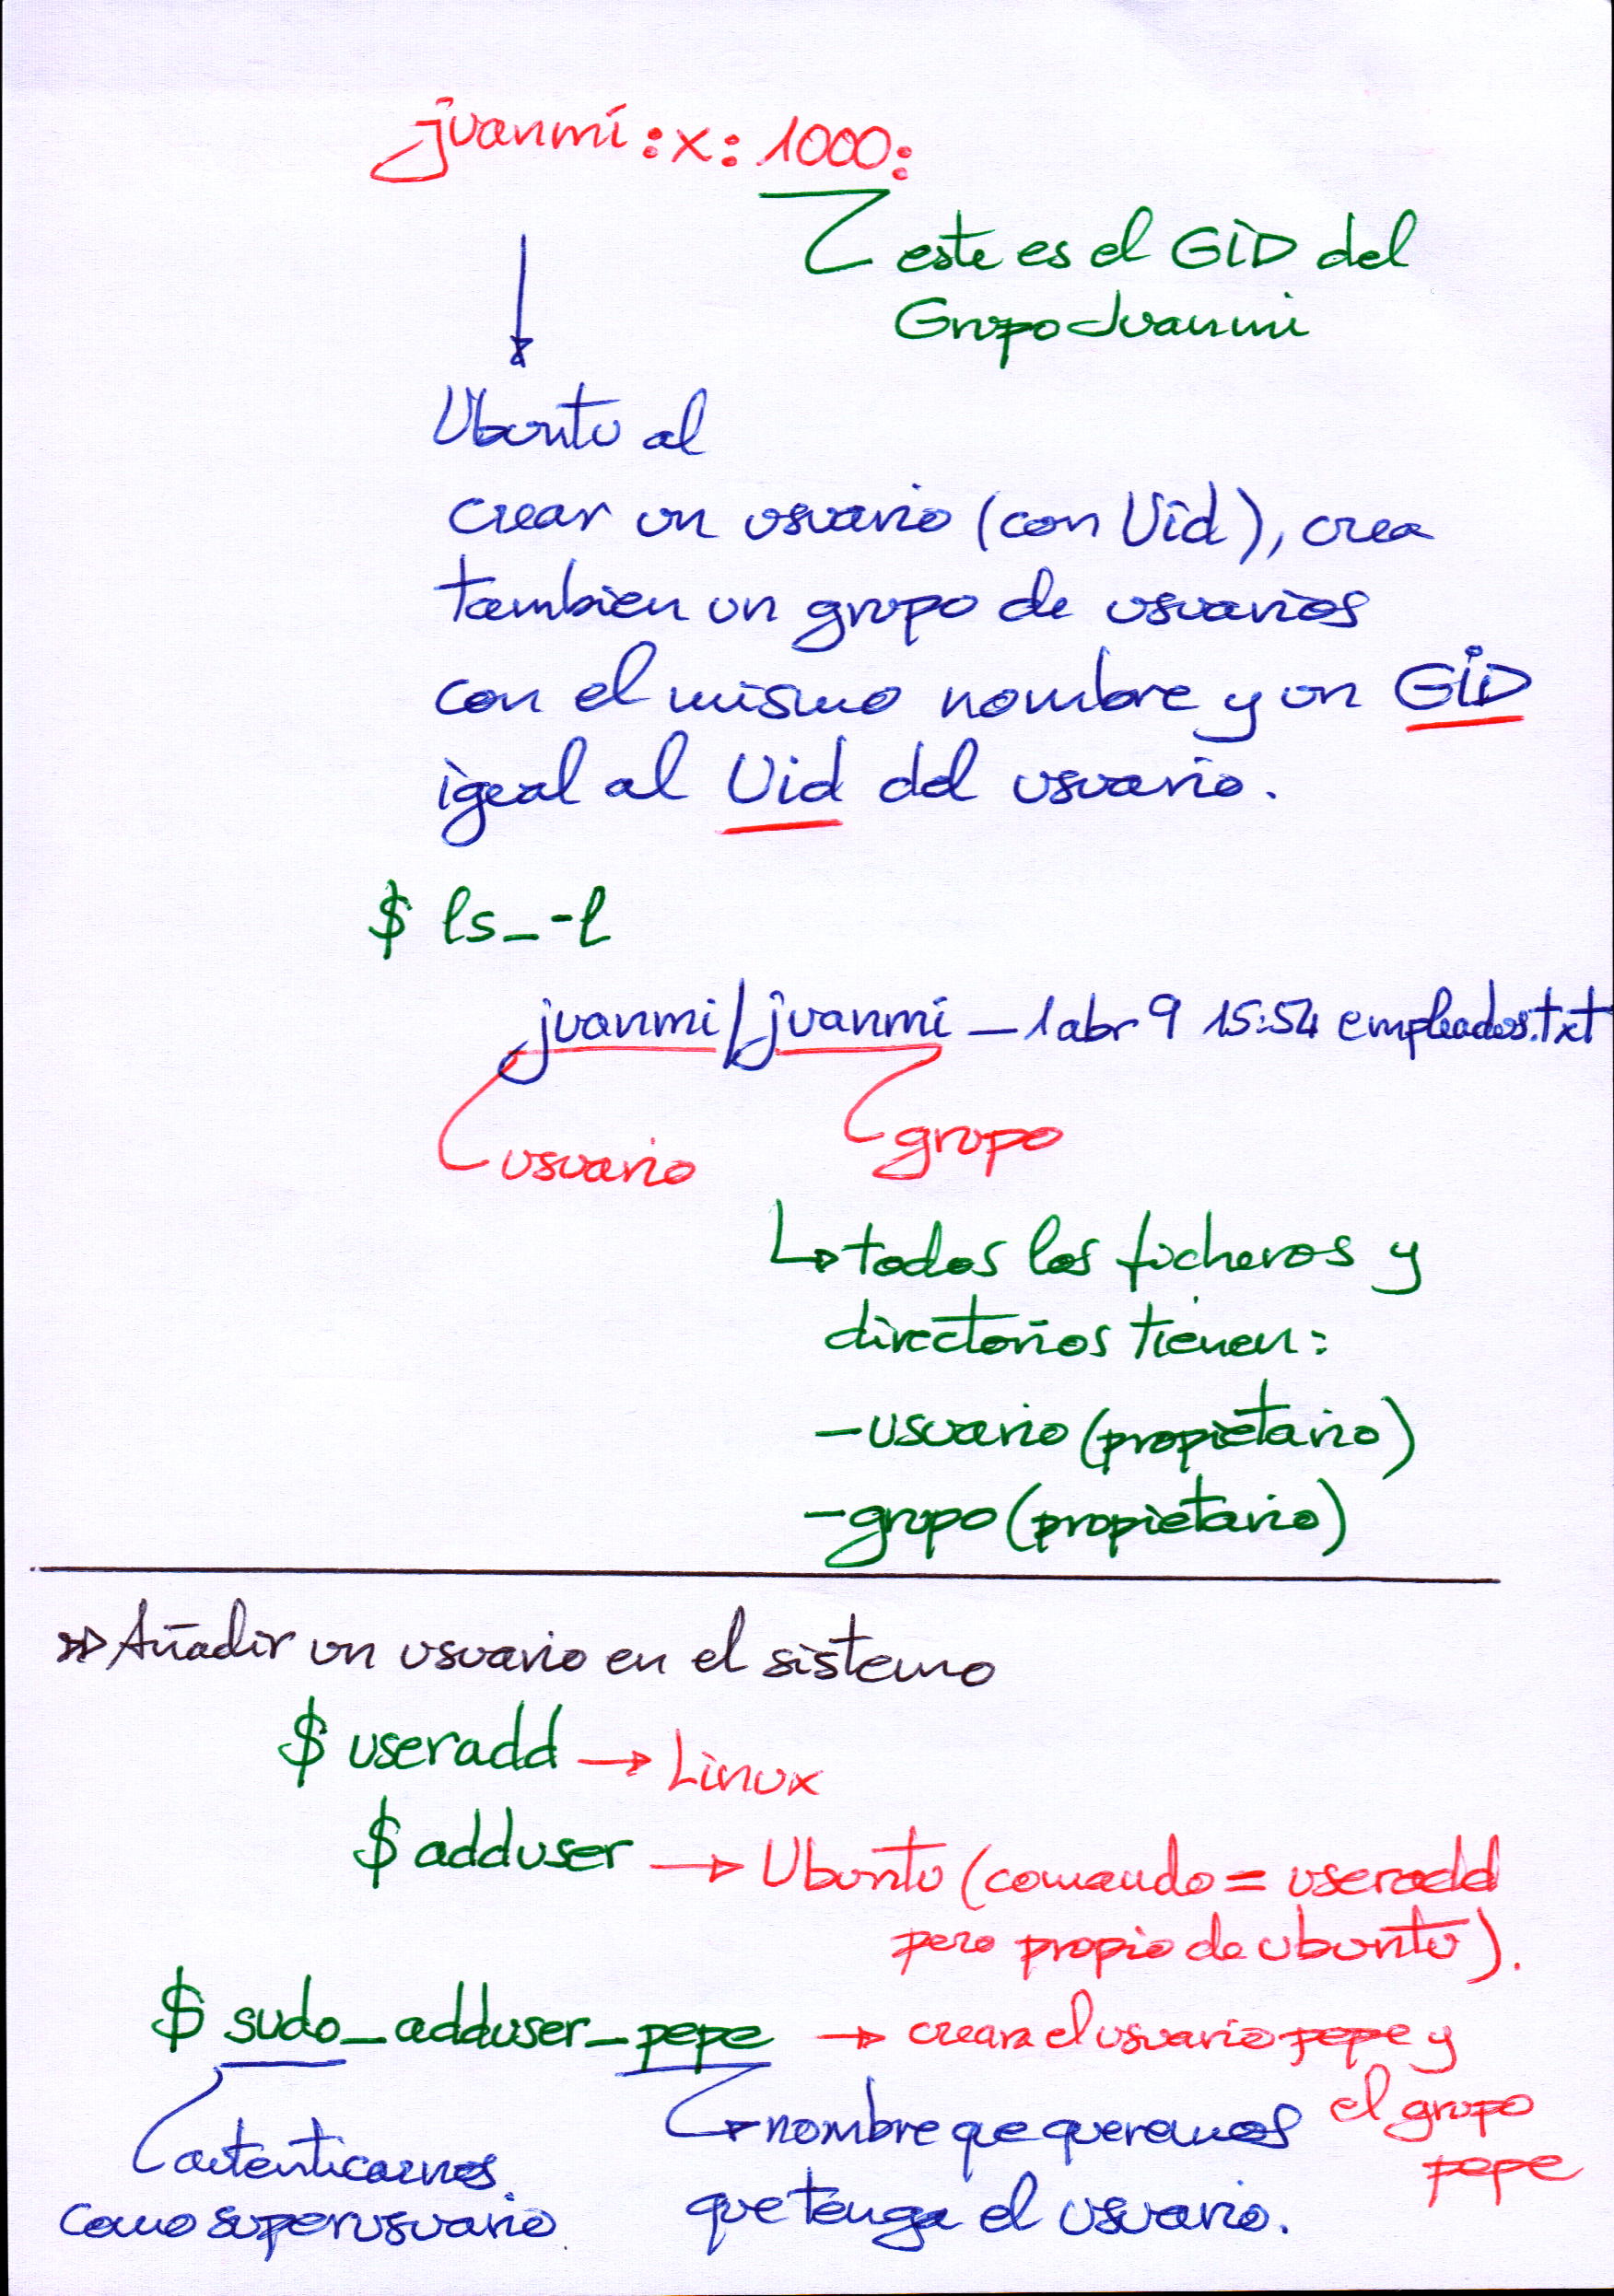 juanmi:x:1000:
este es el GID del
Grupo Juanmi
Ubuntu al
crear un usuario (con Uid), crea
tambien un grupo de usuarios
con el mismo nombre y un GID
igeal al Uid del usuario.
$ ls_-l
juanmi/juanmi – 1 abr 9 15:54 empleados.txt
usuario
grupo
todos los ficheros y
directorios tienen:
- usuario (propietario)
- grupo (propietario)
Añadir un usuario en el sistema
$ useradd → Linux
$ adduser → Ubuntu (comando = useradd
pero propio de ubuntu).
$ sudo_adduser_pepe → creara el usuario pepe y
el grupo
pepe
autenticarnos
como superusuario
nombre que queremos
que tenga el usuario.